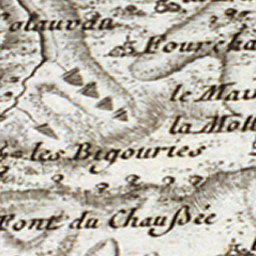 olauvau
Fourcha
le Mau
la Moll
les Bigouries
Pont du Chaußée